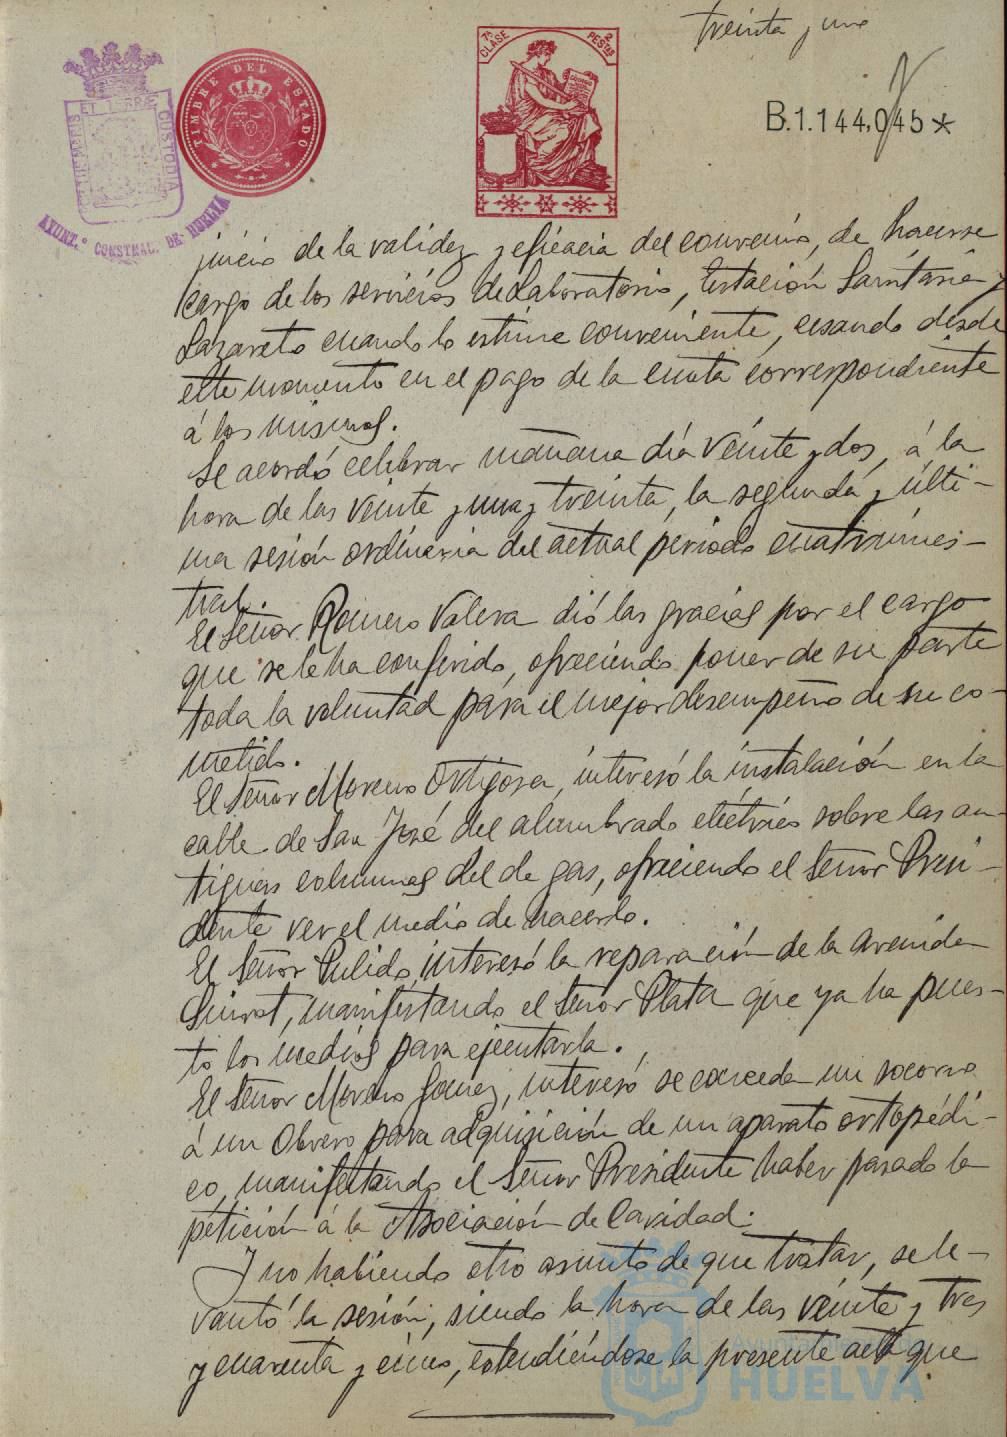 treinta y uno
7ª CLASE
2 PESTAS
TIMBRE DEL ESTADO
ET TERRÆ
CUSTODIA
AYUNT.º CONSTNAL. DE HUELVA
B.1.144,045*
juicio de la validez y eficacia del convenio, de hacerse
cargo de los servicios de Laboratorio, Estación Sanitaria y
Lazareto cuando lo estime conveniente, cesando desde
este momento en el pago de la cuota correspondiente
á los mismos.
Se acordó celebrar mañana día veinte y dos, á la
hora de las veinte y una y treinta, la segunda y últi-
ma sesión ordinaria del actual período cuatrimes-
tral.
El Señor Romero Valera dió las gracias por el cargo
que se le ha conferido, ofreciendo poner de su parte
toda la voluntad para el mejor desempeño de su co-
metido.
El Señor Moreno Ortigosa, interesó la instalación en la
calle de San José del alumbrado eléctrico sobre las an-
tiguas columnas del de gas, ofreciendo el Señor Presi-
dente ver el medio de hacerlo.
El Señor Pulido, interesó la reparación de la Avenida
manifestando el Señor Plata que ya ha pues-
to los medios para ejecutarla.
El Señor Moreno Gomez, interesó se conceda un socorro
á un Obrero para adquisición de un aparato ortopédi-
co, manifestando el Señor Presidente haber pasado la
petición á la Asociación de Caridad.
Y no habiendo otro asunto de que tratar, se le-
vantó la sesión, siendo la hora de las veinte y tres
y cuarenta y cinco, extendiéndose la presente acta que
HUELVA